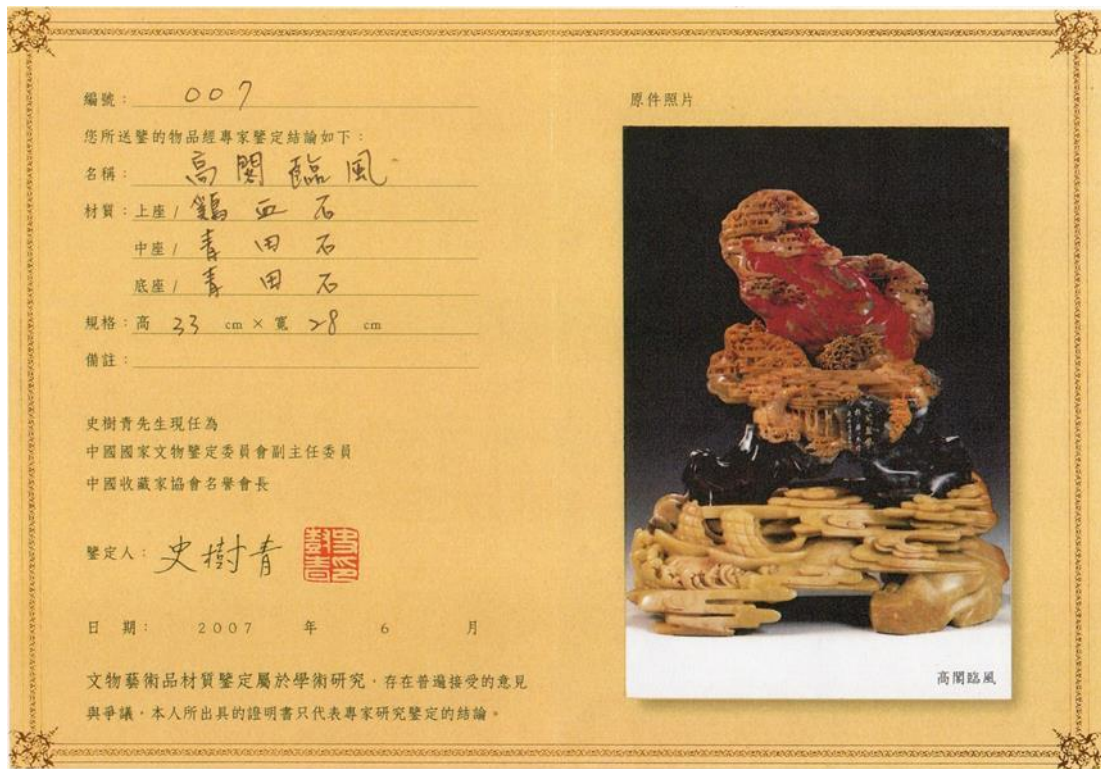 編號：007
您所送鑒的物品經專家鑒定結論如下：
名稱：高閣臨風
材質：上座/ 鷄血石
中座/ 青田石
底座/ 青田石
規格：高 33 cm × 寬 28 cm
備註：
史樹青先生現任為
中國國家文物鑒定委員會副主任委員
中國收藏家協會名譽會長
鑒定人：史樹青
日 期： 2007 年 6 月
文物藝術品材質鑒定屬於學術研究，存在普遍接受的意見
與爭議。本人所出具的證明書只代表專家研究鑒定的結論。
原件照片
高閣臨風